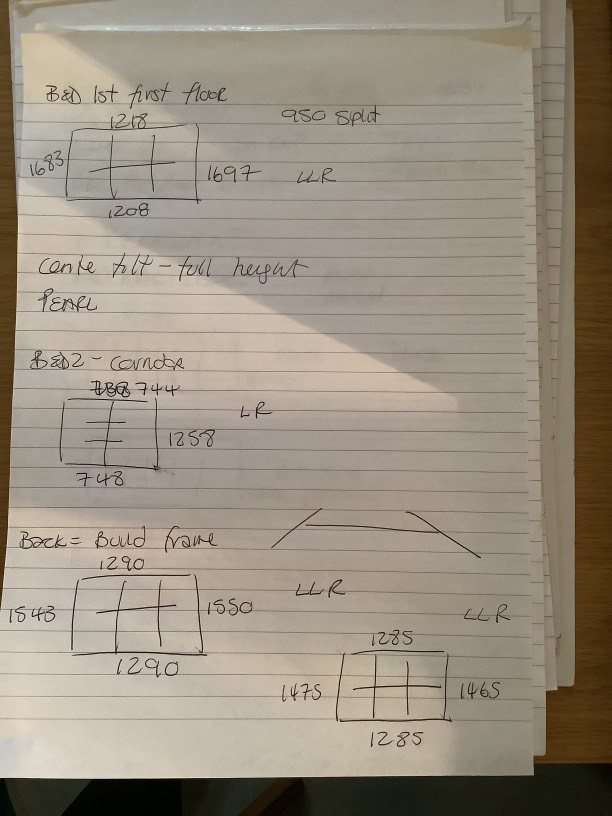 BED 1st first floor
950 split
1218
1683
1697 LLR
1208
centre tilt - full height
PEARL
BED2 - corridor
744
LR
1258
748
Back = Build frame
1290
LLR
1543
1550
LLR
1290
1285
1475
1465
1285